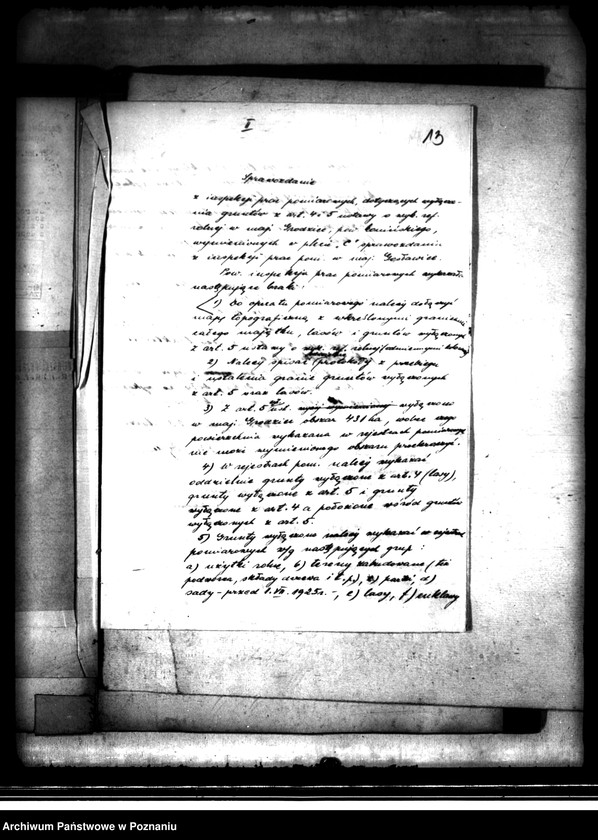 I
13
Sprawozdanie
z inspekcji prac pomiarowych, dotyczących wyłącze-
nia gruntów z art. 4 i 5 ustawy o wyk. ref.
rolnej w maj. Grodziec, pow. Konińskiego,
wymienionych w pkcie "C" sprawozdania
z inspekcji prac pom. w maj. Gosławice.
Pow. inspekcja prac pomiarowych wykazała
następujące braki:
1) Do operatu pomiarowego należy dołączyć
mapę topograficzną z wkreślonymi granicami
całego majątku, lasów i gruntów wyłączonych
z art. 5 ustawy o wyk. ref. rolnej
2) Należy spisać protokóły z przebiegu
i ustalenia granic gruntów wyłączonych
z art. 5 oraz lasów.
3) Z art. 5 ust. wyłączono
w maj. Grodziec obszar 431 ha, wobec czego
powierzchnia wykazana w rejestrach pomiarowych
nie może wymienionego obszaru przekraczać.
4) W rejestrach pom. należy wykazać
oddzielnie grunty wyłączone z art. 4 (lasy),
grunty wyłączone z art. 5 i grunty
wyłączone z art. 4 a położone wśród gruntów
wyłączonych z art. 5.
5) Grunty wyłączone należy wykazać w rejestrze
pomiarowych w/g następujących grup:
a) użytki rolne, b) tereny zabudowane (
podwórza, składy drzewa i t.p.), c) parki, d)
sady - przed 1.VII.1925 r. -, e) lasy, f) enklawy
Archiwum Państwowe w Poznaniu